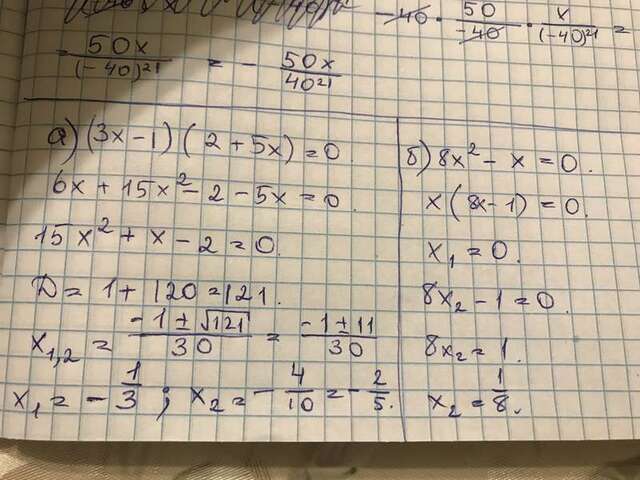 -40 · 50/-40 · x/(-40)²¹ =
= 50x/(-40)²¹ = - 50x/40²¹
а) (3x-1)(2+5x)=0.
6x+15x²-2-5x=0.
15x²+x-2=0.
D=1+120=121.
x₁,₂ = -1±√121/30 = -1±11/30
x₁ = -1/3; x₂ = -4/10 = -2/5.
б) 8x²-x=0.
x(8x-1)=0.
x₁=0.
8x₂-1=0.
8x₂=1.
x₂=1/8.